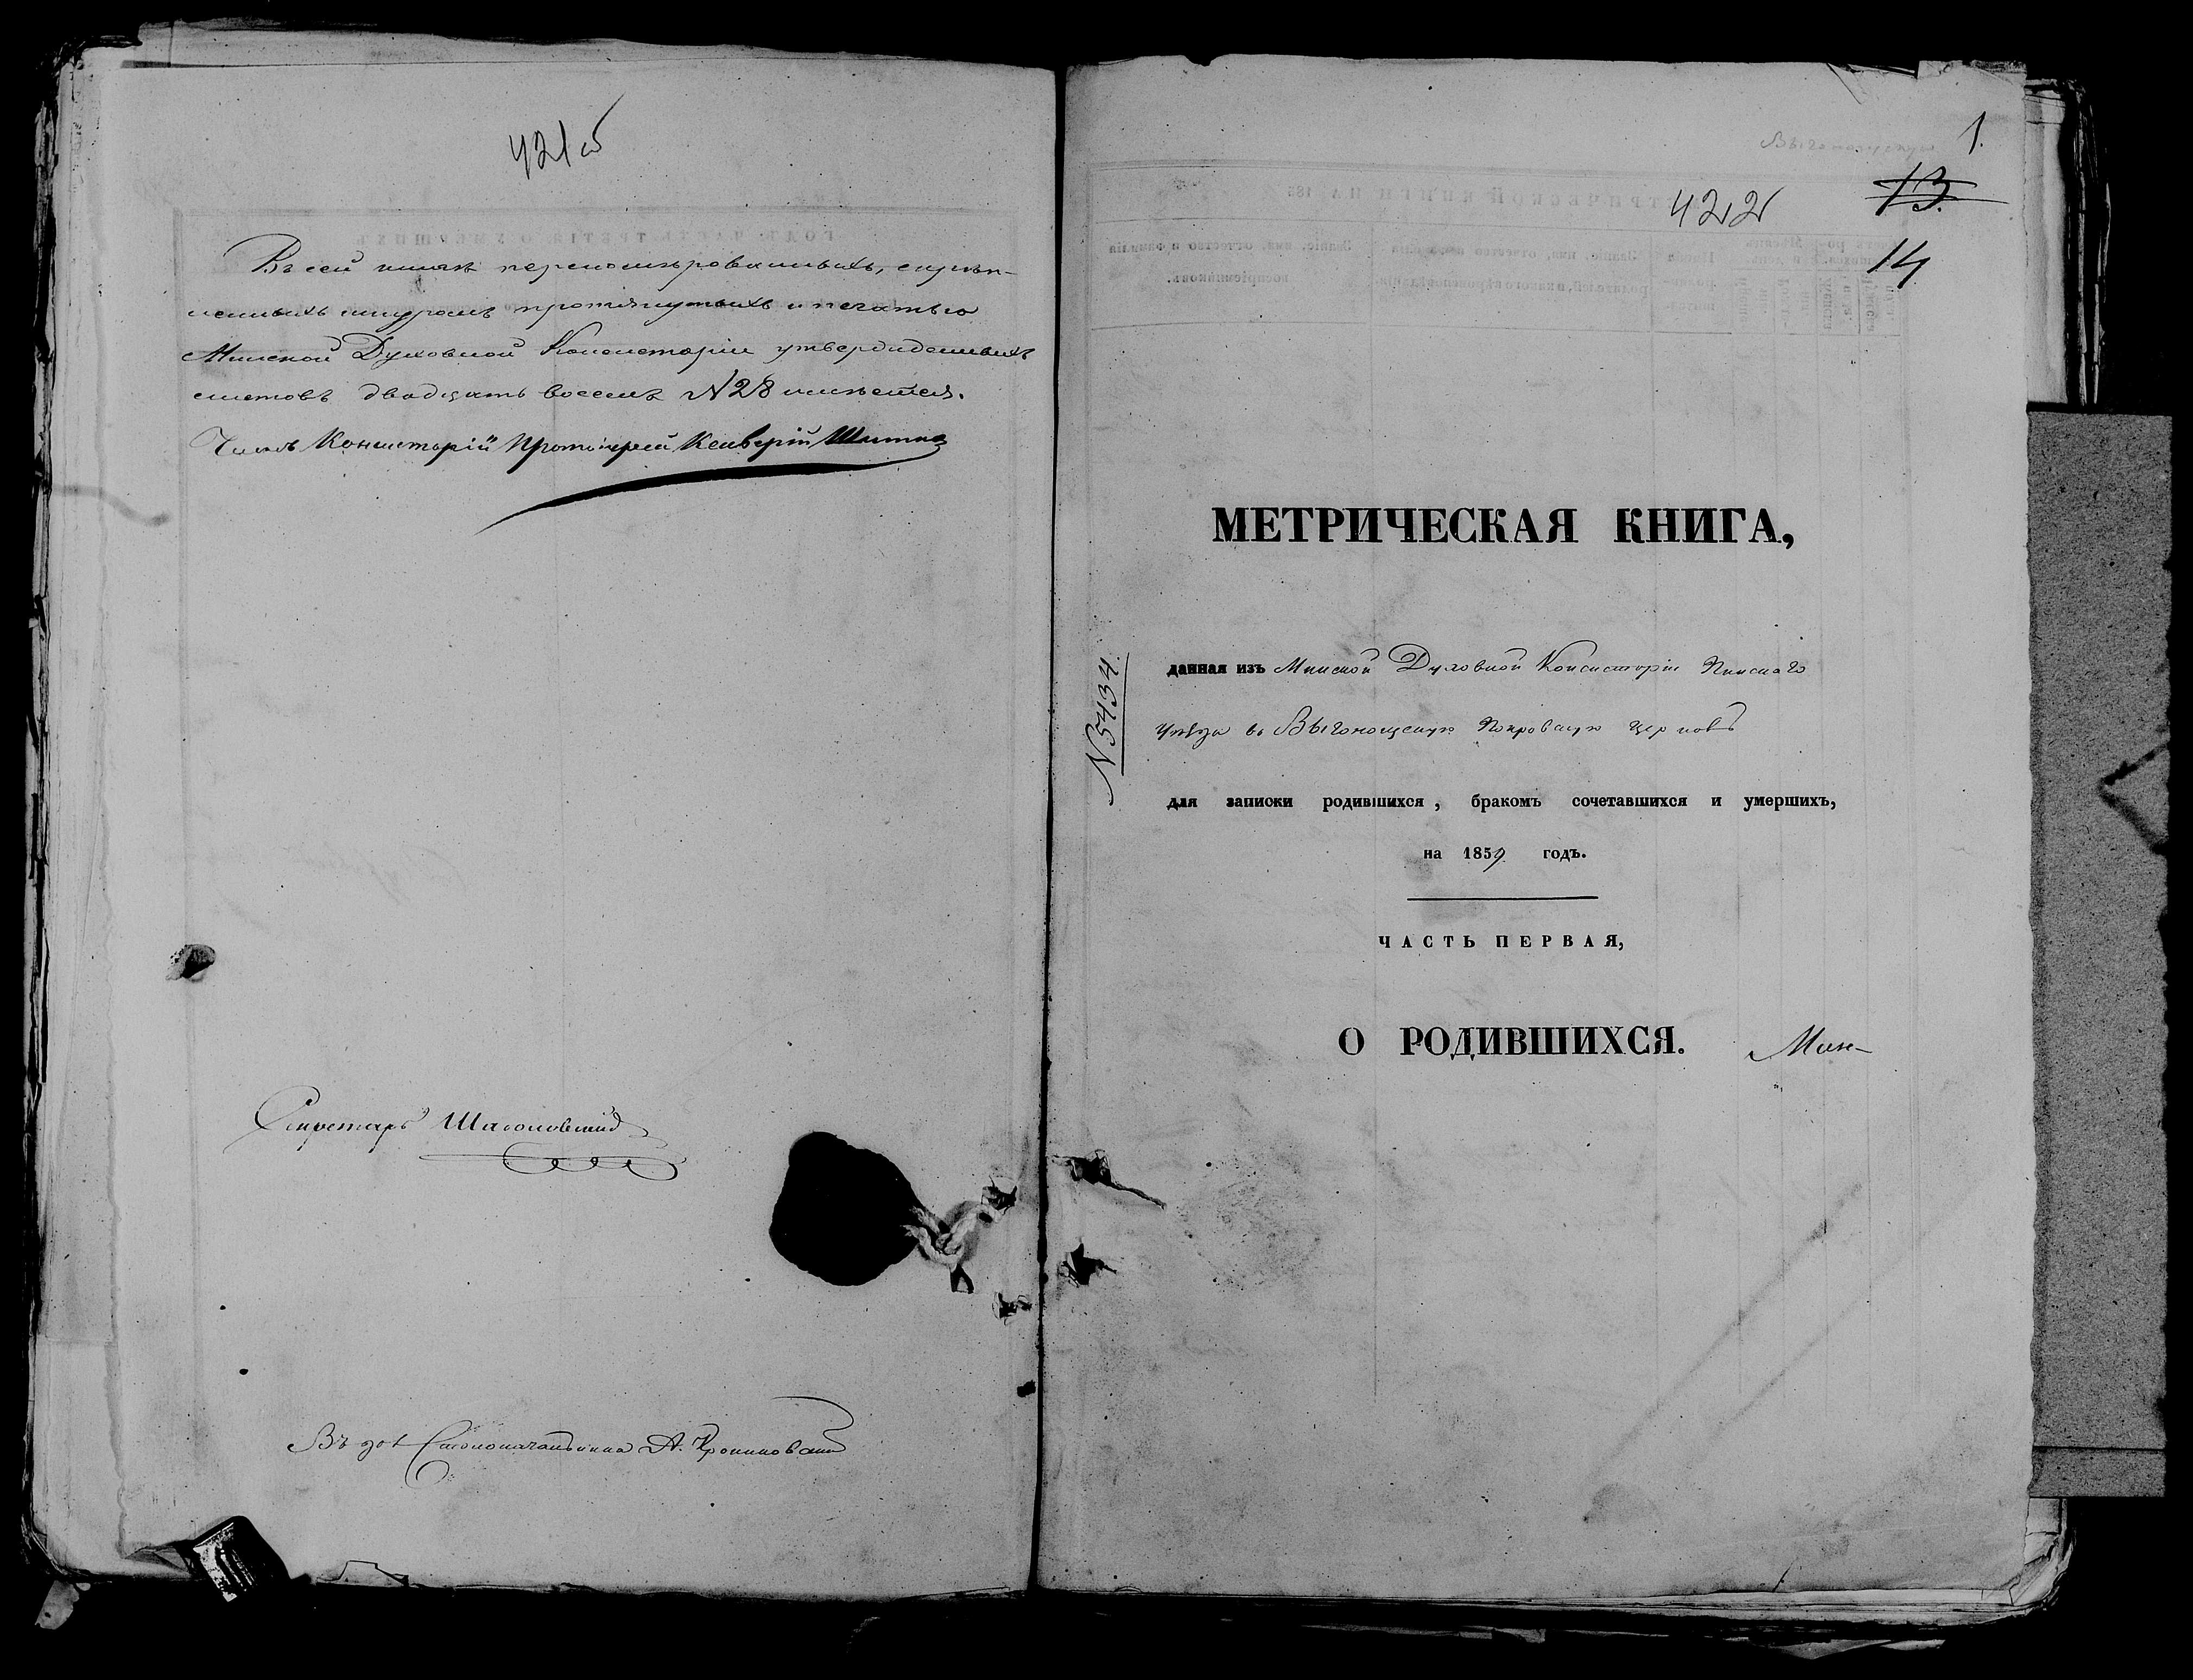 421об
Въ сей книгѣ перенумерованныхъ, скрѣп-
ленныхъ шнуромъ протянутыхъ и печатью
Минской Духовной Консисторіи утвержденныхъ
листовъ двадцать восемь №28 имѣется.
Членъ Консисторіи Протоіерей
Секретарь
Въ дол. Столоначальника А.
Выгонощскую
1.
13.
422
14
МЕТРИЧЕСКАЯ КНИГА,
№5434.
данная изъ Минской Духовной Консисторіи Пинскаго
уѣзда въ Выгонощскую Покровскую церковь
для записки родившихся, бракомъ сочетавшихся и умершихъ,
на 1859 годъ.
ЧАСТЬ ПЕРВАЯ,
О РОДИВШИХСЯ.
Мин-